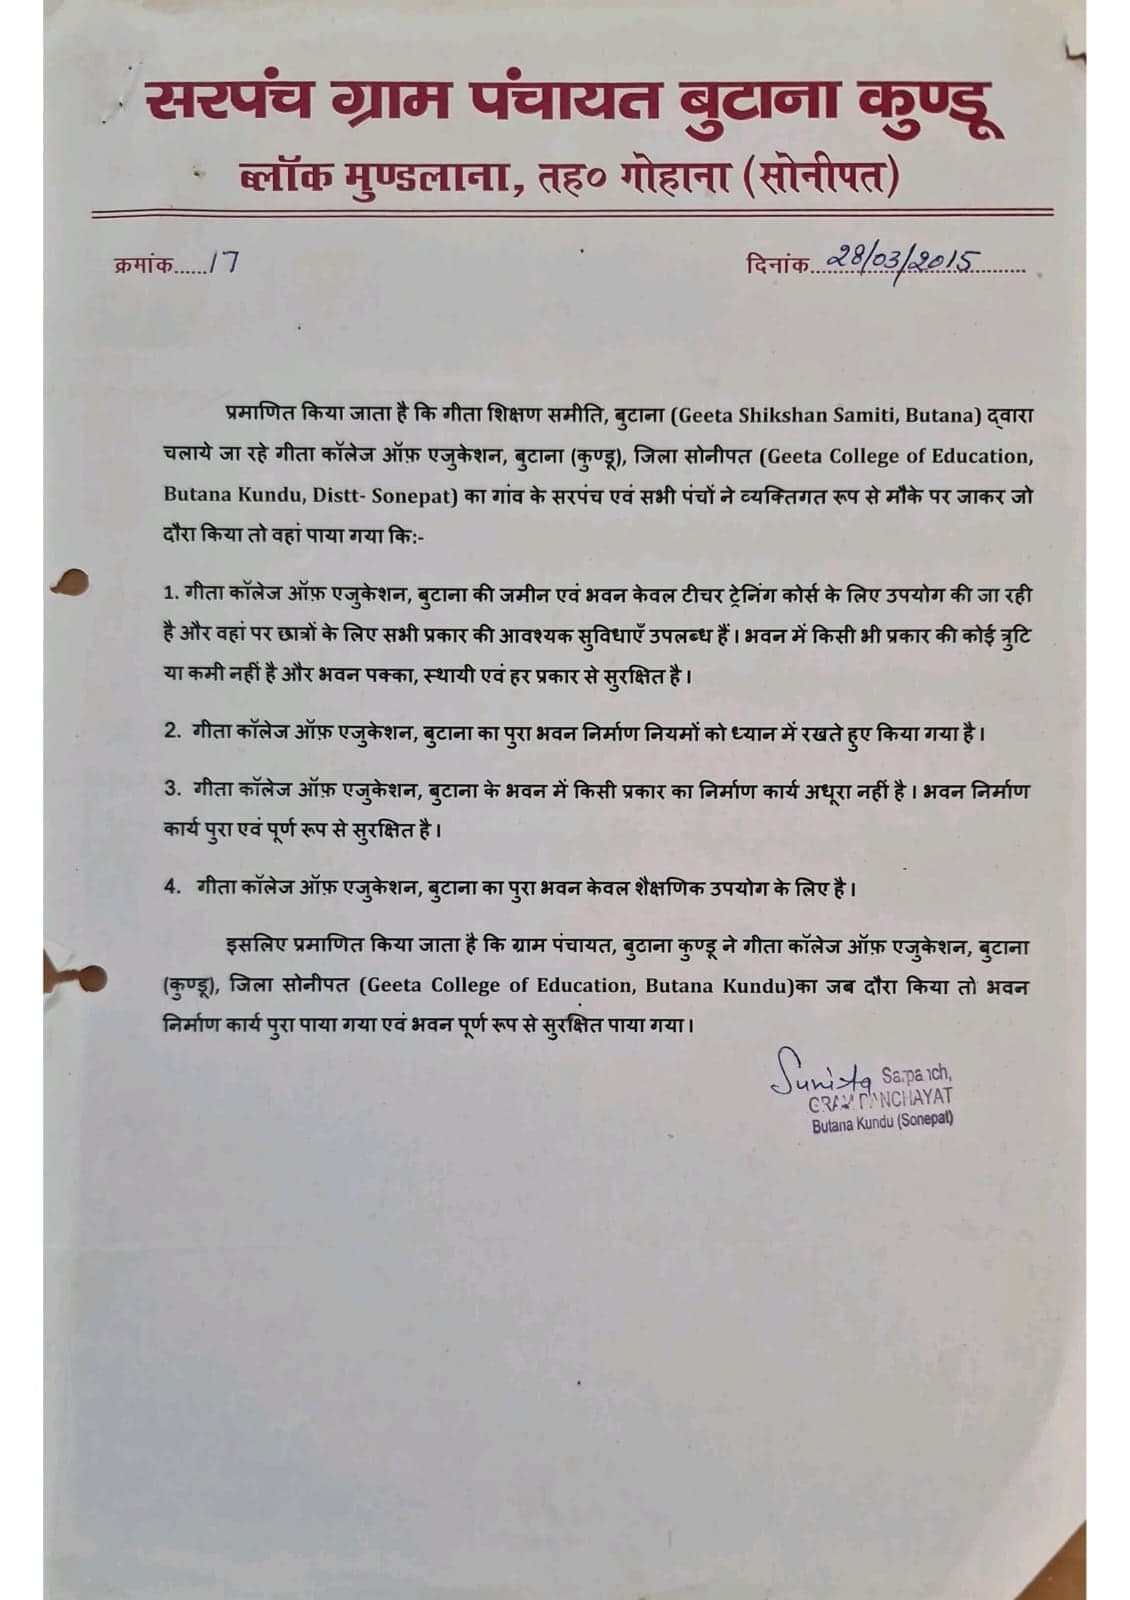 सरपंच ग्राम पंचायत बुटाना कुण्डू
ब्लॉक मुण्डलाना, तह० गोहाना (सोनीपत)
क्रमांक......17
दिनांक 28/03/2015
प्रमाणित किया जाता है कि गीता शिक्षण समीति, बुटाना (Geeta Shikshan Samiti, Butana) द्वारा
चलाये जा रहे गीता कॉलेज ऑफ़ एजुकेशन, बुटाना (कुण्डू), जिला सोनीपत (Geeta College of Education,
Butana Kundu, Distt- Sonepat) का गांव के सरपंच एवं सभी पंचों ने व्यक्तिगत रूप से मौके पर जाकर जो
दौरा किया तो वहां पाया गया कि:-
1. गीता कॉलेज ऑफ़ एजुकेशन, बुटाना की जमीन एवं भवन केवल टीचर ट्रेनिंग कोर्स के लिए उपयोग की जा रही
है और वहां पर छात्रों के लिए सभी प्रकार की आवश्यक सुविधाएँ उपलब्ध हैं। भवन में किसी भी प्रकार की कोई त्रुटि
या कमी नहीं है और भवन पक्का, स्थायी एवं हर प्रकार से सुरक्षित है।
2. गीता कॉलेज ऑफ़ एजुकेशन, बुटाना का पुरा भवन निर्माण नियमों को ध्यान में रखते हुए किया गया है।
3. गीता कॉलेज ऑफ़ एजुकेशन, बुटाना के भवन में किसी प्रकार का निर्माण कार्य अधूरा नहीं है। भवन निर्माण
कार्य पुरा एवं पूर्ण रूप से सुरक्षित है।
4. गीता कॉलेज ऑफ़ एजुकेशन, बुटाना का पुरा भवन केवल शैक्षणिक उपयोग के लिए है।
इसलिए प्रमाणित किया जाता है कि ग्राम पंचायत, बुटाना कुण्डू ने गीता कॉलेज ऑफ़ एजुकेशन, बुटाना
(कुण्डू), जिला सोनीपत (Geeta College of Education, Butana Kundu)का जब दौरा किया तो भवन
निर्माण कार्य पुरा पाया गया एवं भवन पूर्ण रूप से सुरक्षित पाया गया।
Sunita Sarpanch,
GRAM PANCHAYAT
Butana Kundu (Sonepat)